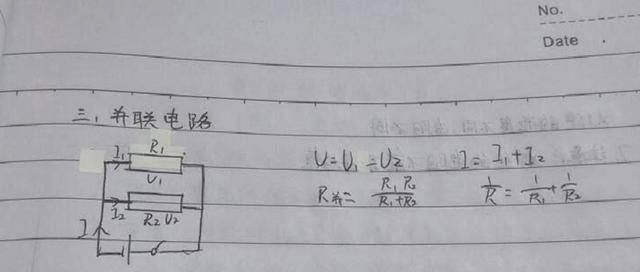 No.
Date .
三、并联电路
R₁
I₁
U₁
I₂
R₂ U₂
I
U=U₁=U₂ I=I₁+I₂
R并= R₁R₂/R₁+R₂ 1/R=1/R₁+1/R₂